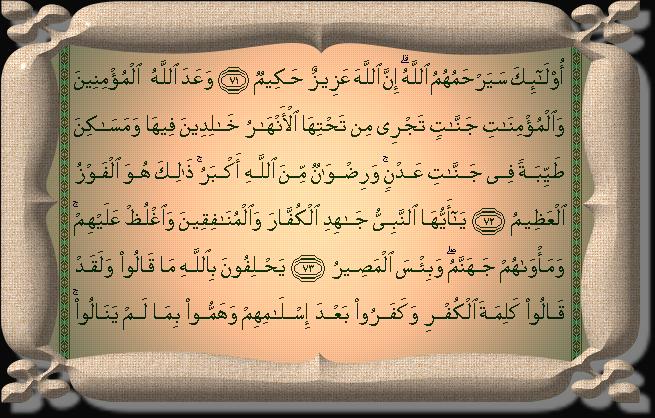 أُوْلَـٰٓئِكَ سَيَرْحَمُهُمُ ٱللَّهُۗ إِنَّ ٱللَّهَ عَزِيزٌ حَكِيمٌ ٧١ وَعَدَ ٱللَّهُ ٱلْمُؤْمِنِينَ
وَٱلْمُؤْمِنَـٰتِ جَنَّـٰتٍ تَجْرِى مِن تَحْتِهَا ٱلْأَنْهَـٰرُ خَـٰلِدِينَ فِيهَا وَمَسَـٰكِنَ
طَيِّبَةً فِى جَنَّـٰتِ عَدْنٍۚ وَرِضْوَٰنٌ مِّنَ ٱللَّهِ أَكْبَرُۚ ذَٰلِكَ هُوَ ٱلْفَوْزُ
ٱلْعَظِيمُ ٧٢ يَـٰٓأَيُّهَا ٱلنَّبِىُّ جَـٰهِدِ ٱلْكُفَّارَ وَٱلْمُنَـٰفِقِينَ وَٱغْلُظْ عَلَيْهِمْۚ
وَمَأْوَىٰهُمْ جَهَنَّمُۖ وَبِئْسَ ٱلْمَصِيرُ ٧٣ يَحْلِفُونَ بِٱللَّهِ مَا قَالُوا۟ وَلَقَدْ
قَالُوا۟ كَلِمَةَ ٱلْكُفْرِ وَكَفَرُوا۟ بَعْدَ إِسْلَـٰمِهِمْ وَهَمُّوا۟ بِمَا لَمْ يَنَالُوا۟ۚ